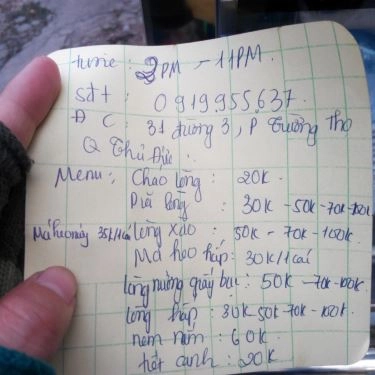 time: 3PM - 11PM.
sđt: 0919955637
ĐC: 31 đường 3, P Trường Thọ
Q Thủ Đức.
Menu: Cháo lòng: 20K.
Dĩa lòng: 30K - 50K - 70K - 100K
Má heo nướng 35K/1cái lòng xào: 50K - 70K - 100K
Má heo hấp: 30K/1cái
lòng nướng giấy bạc: 50K - 70K - 100K
lòng hấp: 30K 50K - 70K - 100K
nem nắm: 60K
tiết canh: 20K